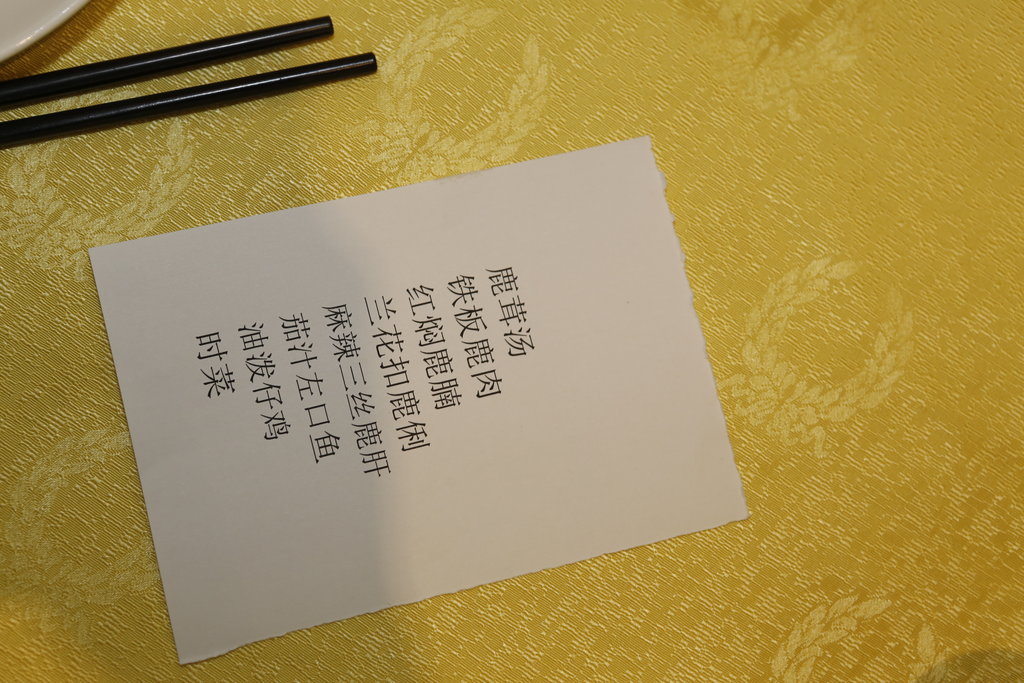 鹿茸汤
铁板鹿肉
红焖鹿腩
兰花扣鹿俐
麻辣三丝鹿肝
茄汁左口鱼
油泼仔鸡
时菜